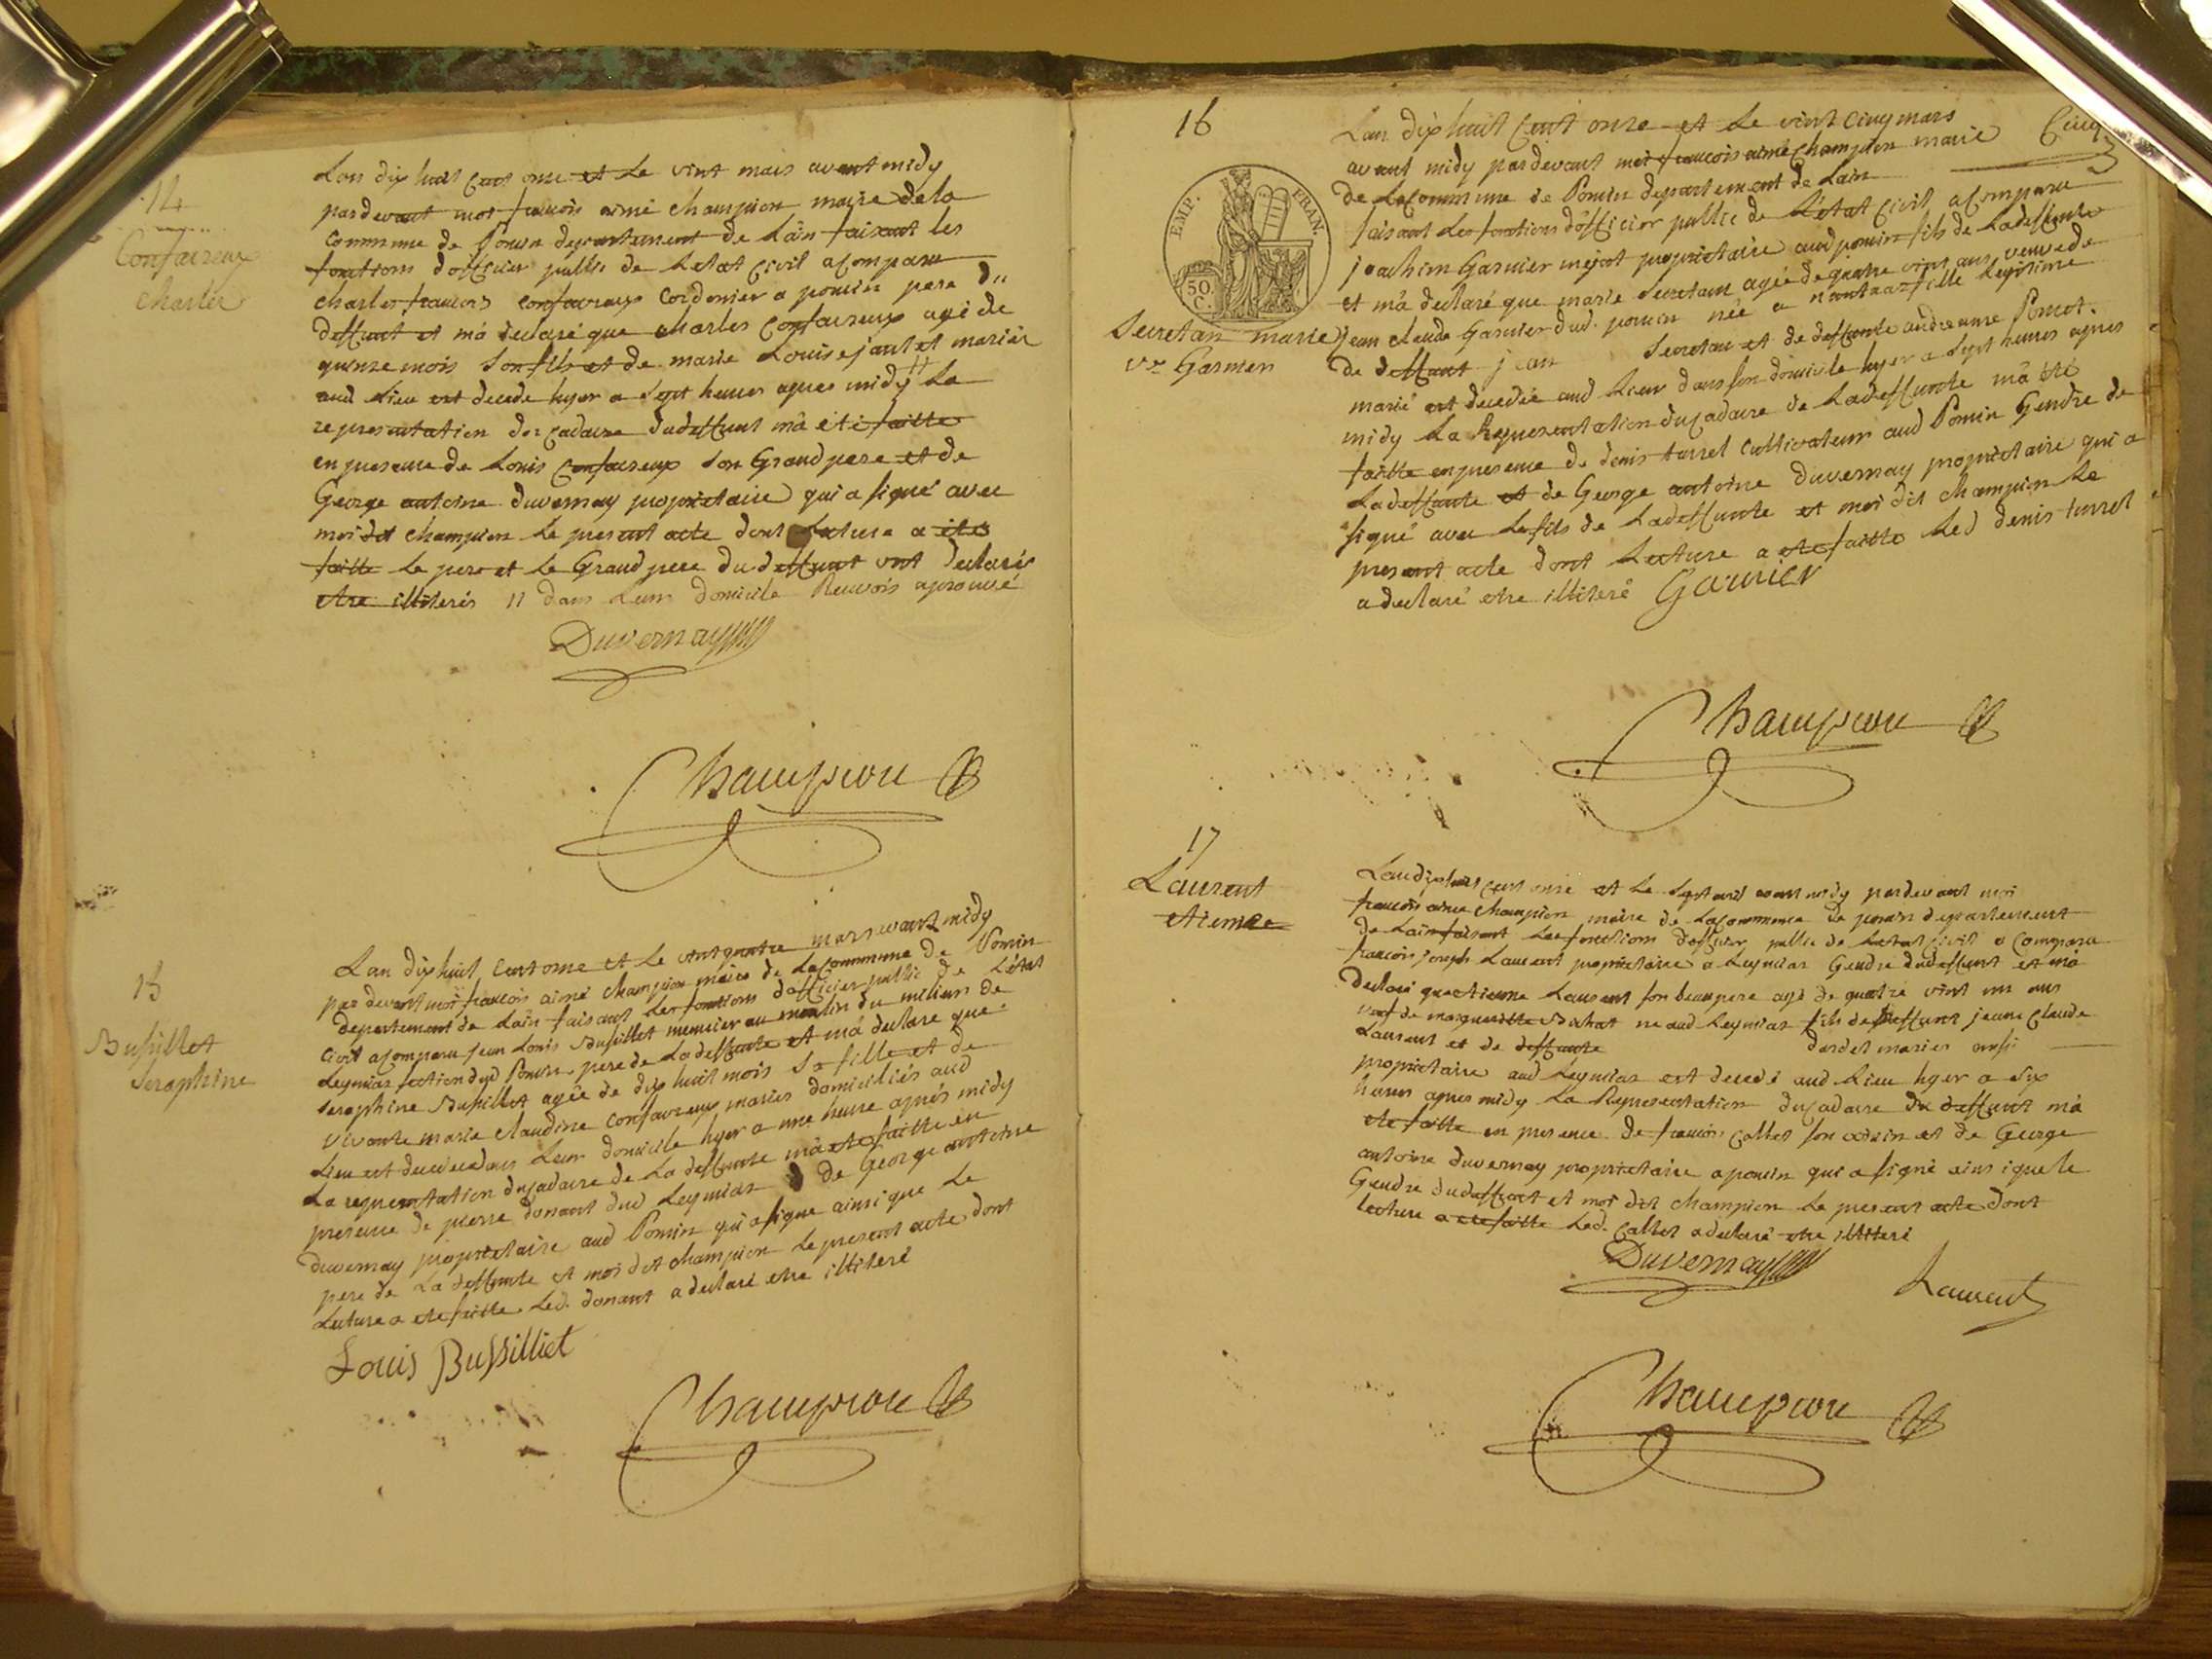 14
Confavreux
Charles
Lan dix huit cent onze et Le vint mars avant midy
pardevant moi francois aimé champion maire de la
commune de Poncin departement de Lain faisant les
fonctions dofficier public de Letat civil a comparu
charles francois confavreux Cordonier a poncin pere du
deffunt et ma declaré que charles Confavreux agé de
quinze mois son fils et de marie Louise jantet mariés
aud Lieu est decede hyer a sept heures apres midy // La
representation du Cadavre dudeffunt mà été faitte
en presence de Louis Confavreux son Grand pere et de
George antoine duvernay proprietaire qui a signé avec
moi dit champion Le present acte dont Lecture a été
faitte Le pere et Le Grand pere du deffunt ont declarés
etre illiterés // dans Leur domicile Renvois aprouvé
Duvernay
Champion
15
Bussillet
Seraphine
Lan dix huit Cent onze et Le vint quatre mars avant midy
par devant moi francois aimé champion maire de La Commune de Poncin
departement de Lain faisant Les fonctions dofficier public de Létat
Civil a comparu jean Louis Bussillet munier au moulin du milieu de
Leymiat section dud Poncin pere de La deffunte et mà declare que
seraphine Bussillet agée de dix huit mois sa fille et de
vivante marie claudine Confavreux mariés domiciliés aud
Lieu est decedée dans Leur domicile hyer a une heure aprés midy
La representation du Cadavre de La deffunte mà eté faitte en
presence de pierre donant dud Leymiat de George antoine
duvernay proprietaire aud Poncin qui a signe ainsi que Le
pere de La deffunte et moi dit champion Le present acte dont
Lecture a eté faitte Led. donant a declaré etre illiteré
Louis Bussilliet
Champion
16
EMP. FRAN.
50 C.
Secretan marie
Ve Garnier
Cinq
Lan dix huit Cent onze et Le vint cinq mars
avant midy pardevant moi francois aimé Champion maire
de La Commune de Poncin departement de Lain
faisant Les fonctions dofficier public de Létat Civil a comparu
joachim Garnier mejat proprietaire aud poncin fils de La deffunte
et mà declaré que marie Secretan agée de quatre vint ans veuve de
jean claude Garnier dud. poncin née a nantua fille Legitime
de deffunt jean Secretan et de deffunte andreanne Poncet
marié est decedée aud Lieu dans son domicile hyer a sept heures apres
midy La Representation du Cadavre de La deffunte mà été
faitte en presence de denis turrel Cultivateur aud Poncin Gendre de
La deffunte et de George antoine duvernay proprietaire qui a
signé avec Le fils de La deffunte et moi dit champion Le
present acte dont Lecture a eté faitte Led denis turrel
a declaré etre illiteré Garnier
Champion
17
Laurent
etienne
Lan dix huit cent onze et Le sept avril avant midy pardevant moi
francois aimé Champion maire de La Commune de poncin departement
de Lain faisant Les fonctions dofficier public de Letat Civil a Comparu
francois joseph Laurent proprietaire a Leymiat Gendre dudeffunt et mà
declaré que etienne Laurent son beaupere agé de quatre vint un ans
veuf de margueritte Bichat né aud Leymiat fils de deffunt jean Claude
Laurent et de deffunte dardet mariés aussi
proprietaire aud Leymiat est decedé aud Lieu hyer a six
heures apres midy La Representation du Cadavre du deffunt mà
été faitte en presence de francois Callet son voisin et de George
antoine duvernay proprietaire a poncin qui a signé ainsi que le
Gendre du deffunt et moi dit champion Le present acte dont
Lecture a eté faitte Led. Callet a declaré etre illiteré
Duvernay
Laurent
Champion